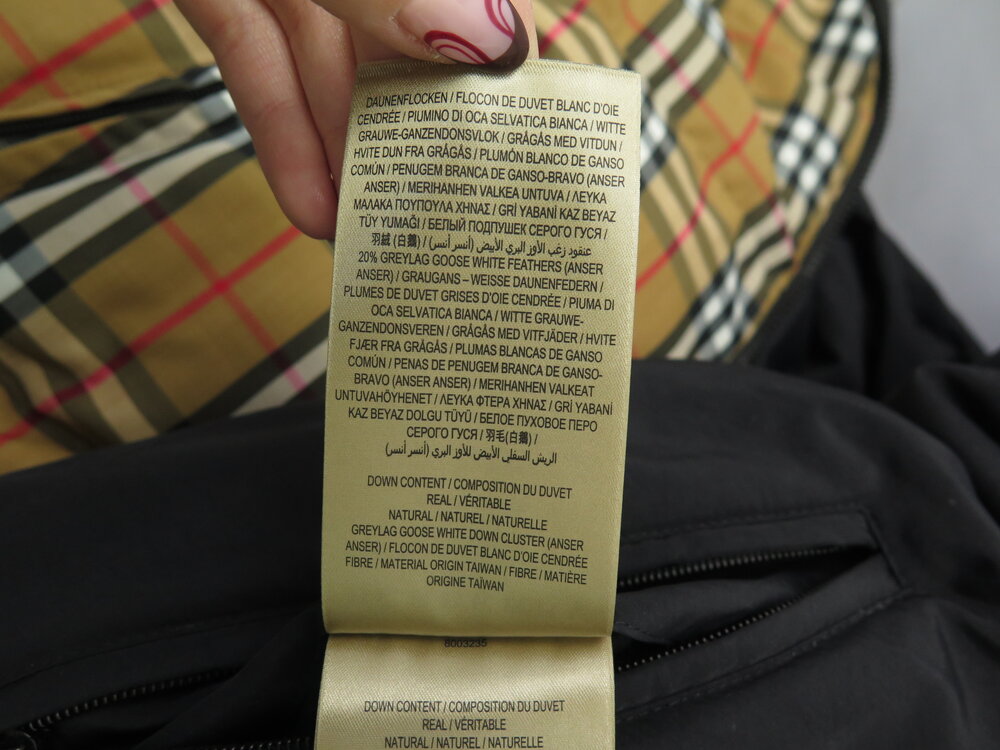 DAUNENFLOCKEN / FLOCON DE DUVET BLANC D'OIE
CENDRÉE / PIUMINO DI OCA SELVATICA BIANCA / WITTE
GRAUWE-GANZENDONSVLOK / GRÅGÅS MED VITDUN /
HVITE DUN FRA GRÅGÅS / PLUMÓN BLANCO DE GANSO
COMÚN / PENUGEM BRANCA DE GANSO-BRAVO (ANSER
ANSER) / MERIHANHEN VALKEA UNTUVA / ΛΕΥΚΑ
ΜΑΛΑΚΑ ΠΟΥΠΟΥΛΑ ΧΗΝΑΣ / GRİ YABANİ KAZ BEYAZ
TÜY YUMAĞI / БЕЛЫЙ ПОДПУШЕК СЕРОГО ГУСЯ /
羽絨 (白鵝) / عنقود زغب الأوز البري الأبيض (أنسر أنسر) /
20% GREYLAG GOOSE WHITE FEATHERS (ANSER
ANSER) / GRAUGANS – WEISSE DAUNENFEDERN /
PLUMES DE DUVET GRISES D'OIE CENDRÉE / PIUMA DI
OCA SELVATICA BIANCA / WITTE GRAUWE-
GANZENDONSVEREN / GRÅGÅS MED VITFJÄDER / HVITE
FJÆR FRA GRÅGÅS / PLUMAS BLANCAS DE GANSO
COMÚN / PENAS DE PENUGEM BRANCA DE GANSO-
BRAVO (ANSER ANSER) / MERIHANHEN VALKEAT
UNTUVAHÖYHENET / ΛΕΥΚΑ ΦΤΕΡΑ ΧΗΝΑΣ / GRİ YABANİ
KAZ BEYAZ DOLGU TÜYÜ / БЕЛОЕ ПУХОВОЕ ПЕРО
СЕРОГО ГУСЯ / 羽毛(白鵝) /
الريش السفلي الأبيض للأوز البري (أنسر أنسر)
DOWN CONTENT / COMPOSITION DU DUVET
REAL / VÉRITABLE
NATURAL / NATUREL / NATURELLE
GREYLAG GOOSE WHITE DOWN CLUSTER (ANSER
ANSER) / FLOCON DE DUVET BLANC D'OIE CENDRÉE
FIBRE / MATERIAL ORIGIN TAIWAN / FIBRE / MATIÈRE
ORIGINE TAÏWAN
8003235
DOWN CONTENT / COMPOSITION DU DUVET
REAL / VÉRITABLE
NATURAL / NATUREL / NATURELLE